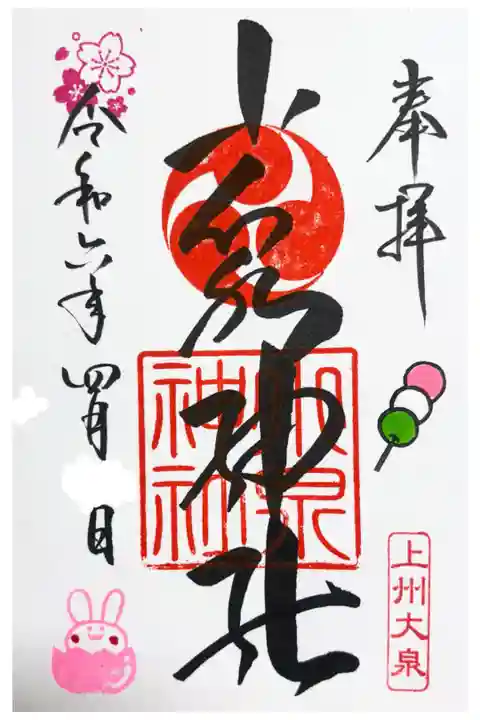 奉拝
上州大泉
大泉神社
大泉神社
令和六年四月 日